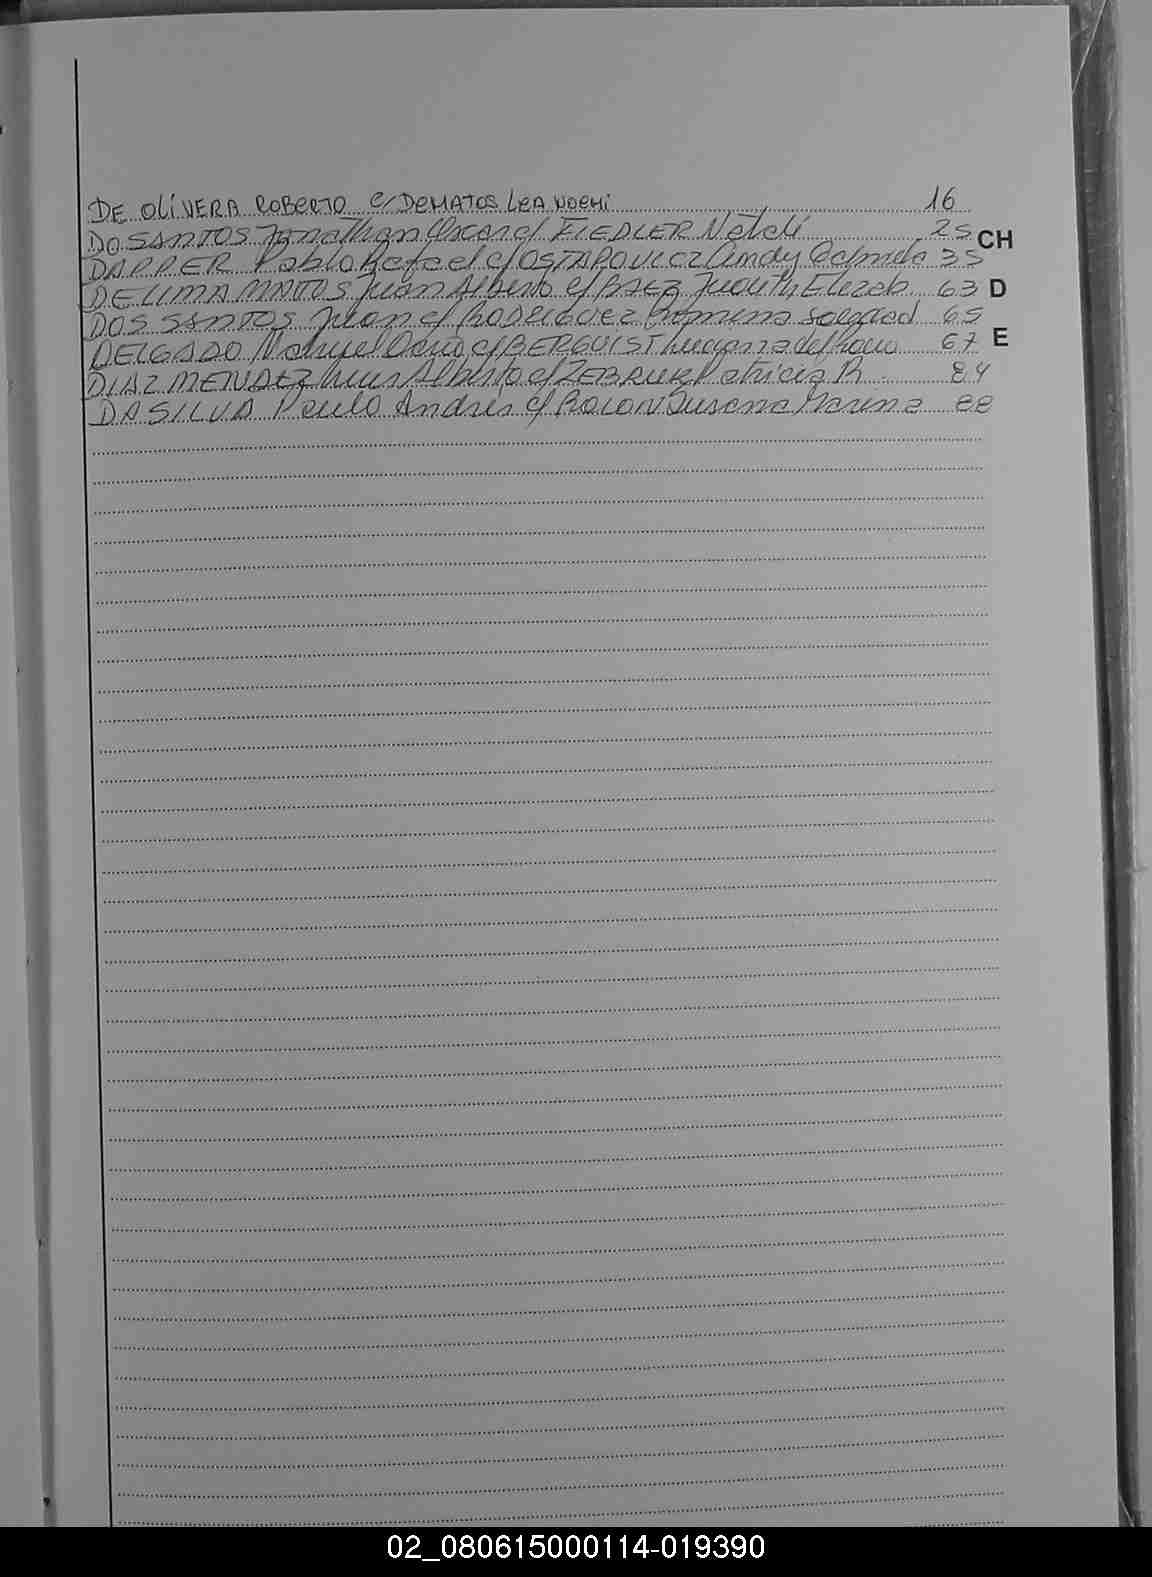 DE OLIVERA ROBERTO c/ DEMATOS LEA NOEMI 16
DO SANTOS Jonathan Oscar c/ FIEDLER Natali 25
CH
DAPPER Pablo Rafael c/ OSTAPOVICZ Andy 35
DE LIMA MATTOS Juan Alberto c/ BAEZ Judith Elizab. 63
D
DOS SANTOS Juan c/ RODRIGUEZ Romina Soledad 65
DELGADO Manuel c/ BERGUIST Luciana del 67
E
DIAZ MENDEZ Luis Alberto c/ ZEBRUK Patricia R. 84
DA SILVA Paulo Andrés c/ ROLON Susana Marina 88
02_080615000114-019390